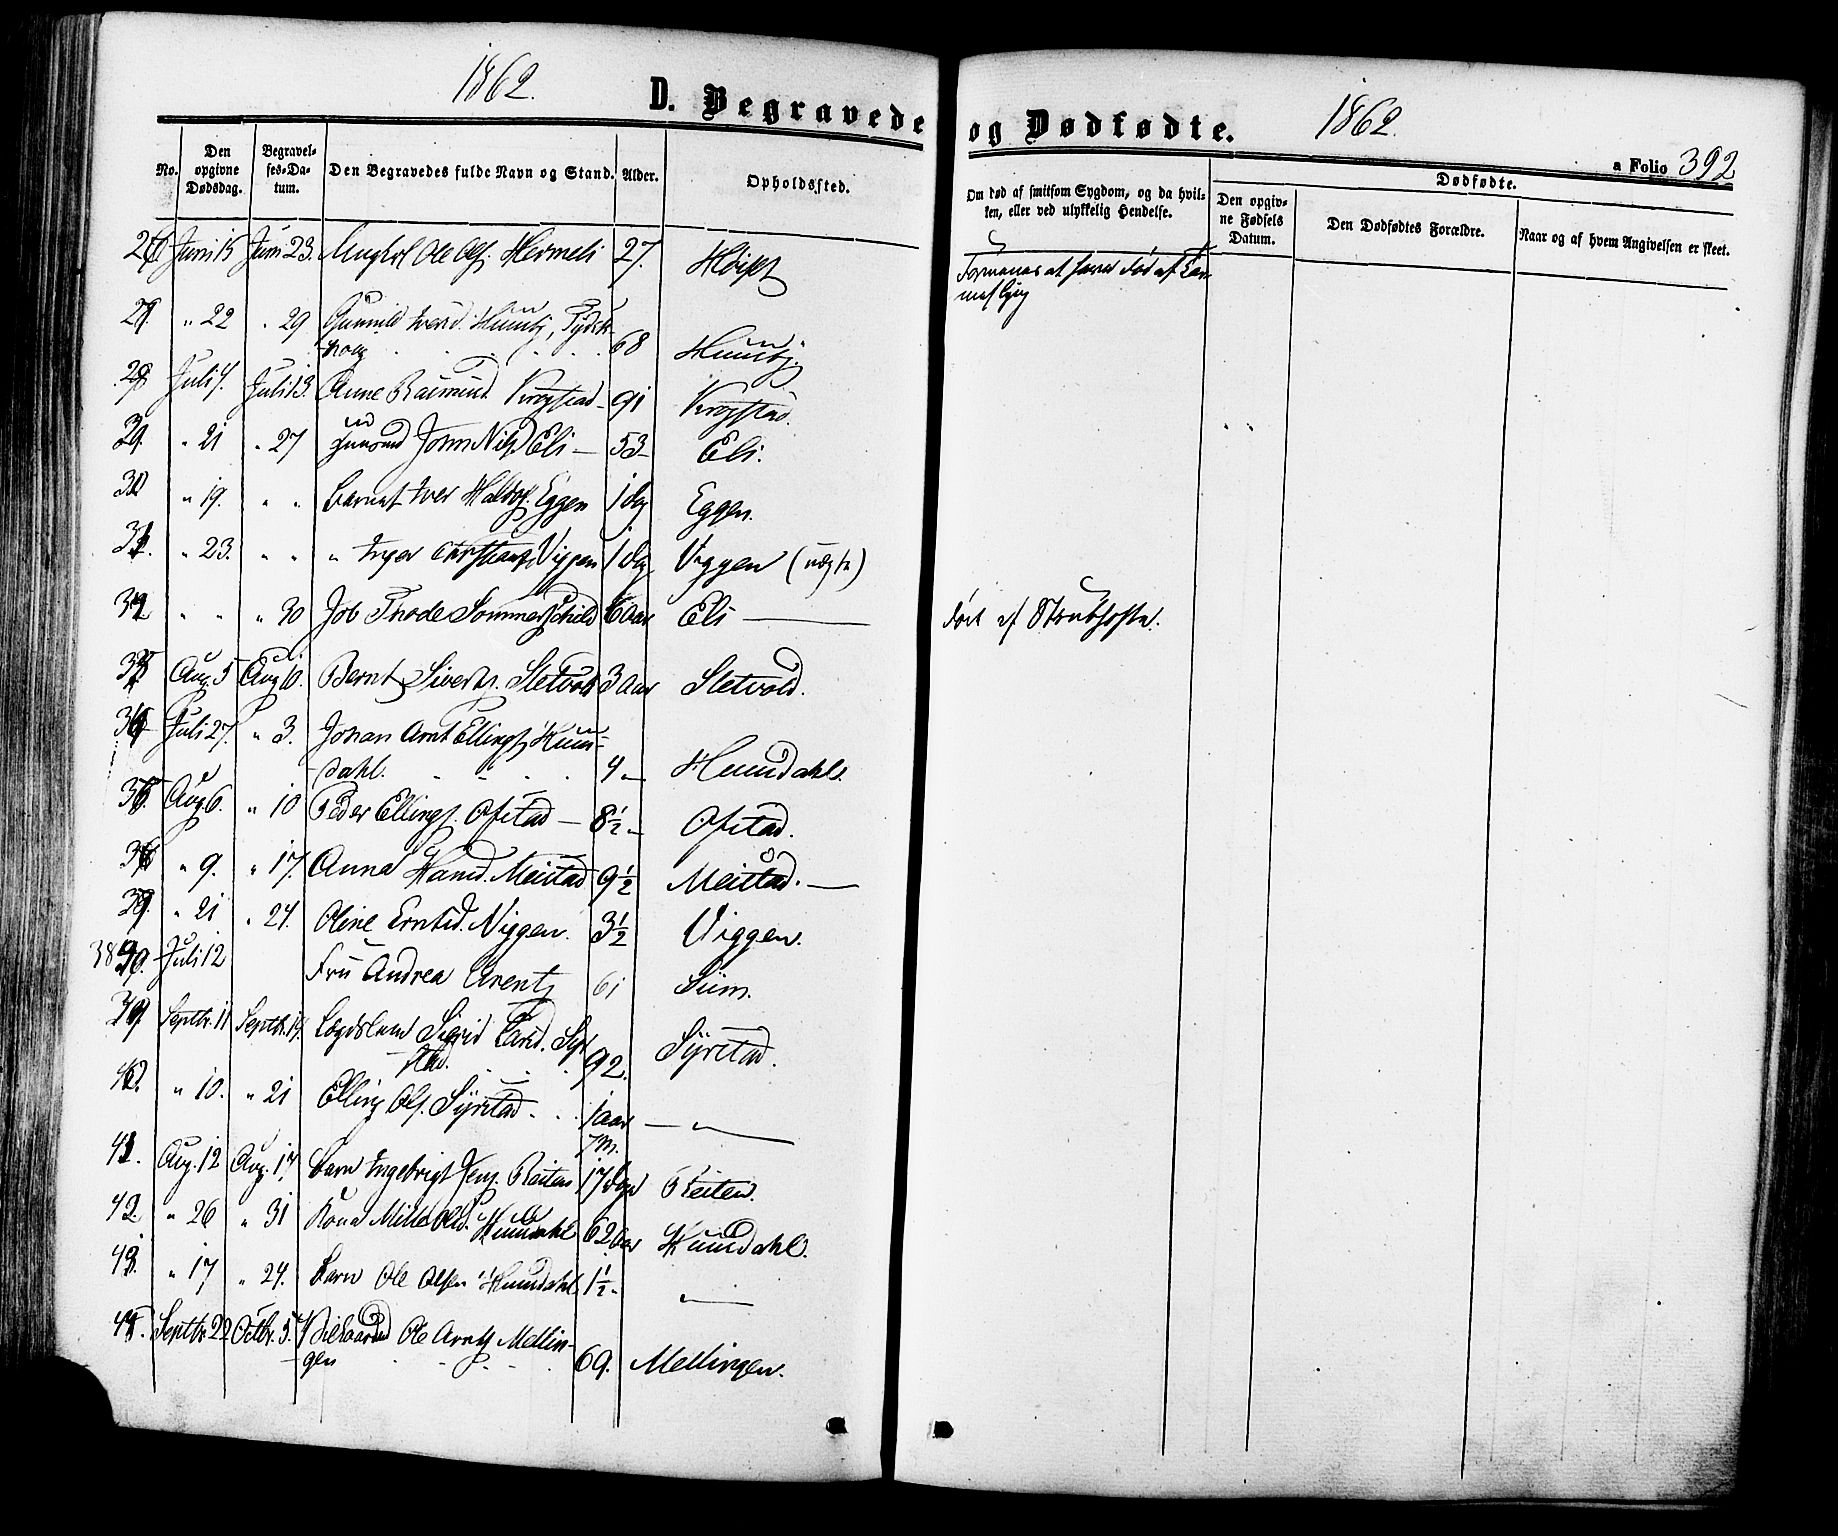 1862. D. Begravede og Dødfødte. 1862.
a Folio 392
No. Den opgivne Dødsdag. Begravelses-Datum. Den Begravedes fulde Navn og Stand. Alder. Opholdssted. Om død af smitsom Sygdom, og da hvilken, eller ved ulykkelig Hendelse. Dødfødte. Den opgivne Fødsels Datum. Den Dødfødtes Forældre. Naar og af hvem Angivelsen er skeet.
26 Juni 15 Juni 23. Ole Ols. 27.
27. " 22 " 29 Gunnild Iversd.
68
28 Juli 4. Juli 13. Anne Krogstad 91 Krogstad.
29. " 21 " 27 John Nils. Eli — 53 Eli.
30 " 19. " " Barnet Iver Eggen 1 Dg Eggen.
31. " 23. " " " Inger Viggen 1 Dg Viggen (uægte)
32 " " " 30 Job Thode Sommerschild 6 Aar Eli — død af Strubehoste.
33 Aug. 5 Aug. 10. Bernt Siverts. Sletvold 3 Aar Sletvold.
34 Juli 27. " 3. Johan Arnt Ellings. Huun-
dahl. 4 " Huundahl.
35. Aug. 6. " 10 Peder Ellings. Ofstad — 8½ " Ofstad.
36 " 9. " 17. Anna Hansd. Meistad 9½ Meistad. —
37. " 21 " 24. Oline Erntsd. Viggen. 3½ Viggen.
38 Juli 12 Fru Andrea Arentz 61
39. Septbr. 11 Septbr. 14. Lægdslem Sigrid Larsd. Syr-
stad. 92. Syrstad.
40. " 10. " 21 Elling Ols. Syrstad. 1 aar — " —
7 M.
41. Aug. 12 Aug. 17 Barn Ingebrigt Jens. Reiten 17 Dage Reiten.
42. " 26 " 31 Kone Huundahl 62 Aar Huundahl.
43. " 17 " 24. Barn Ole Olsen Huundahl 1½ " — " —
44. Septbr. 22 Octbr. 5. Ole Arnts. Mellin-
gen 69. Mellingen.